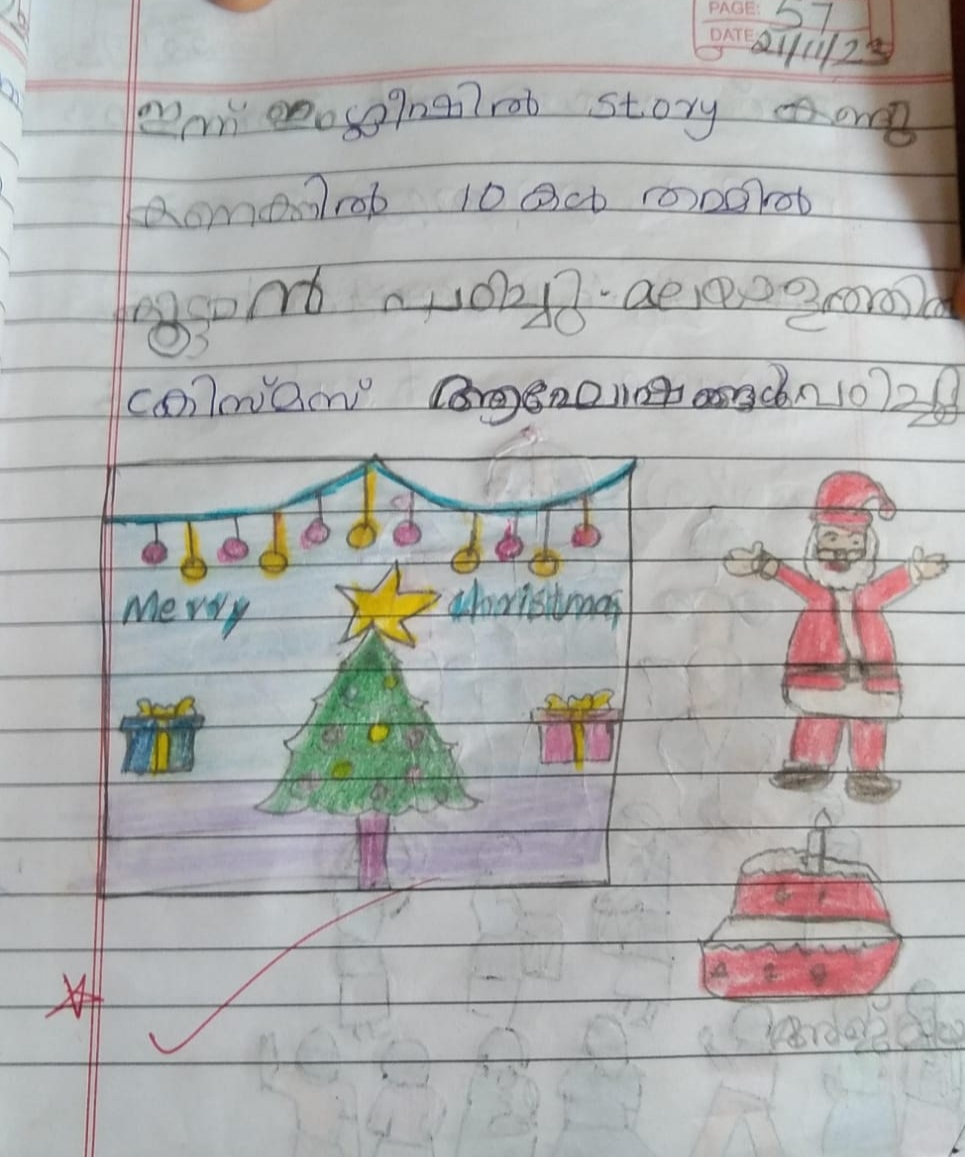 PAGE: 57
DATE: 21/11/23
ഇന്ന് ഇംഗ്ലീഷിൽ Story കണ്ടു
കണക്കിൽ 10 കൾ തമ്മിൽ
കൂട്ടാൻ പഠിച്ചു. മലയാളത്തിൽ
ക്രിസ്മസ് ആഘോഷങ്ങൾ പഠിച്ചു
Merry Christmas